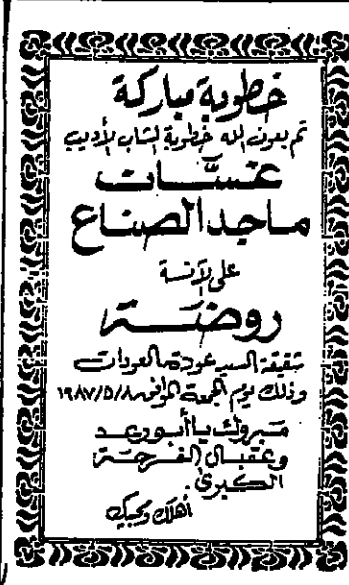 خطوبة مباركة
تم بعون الله خطوبة الشاب الأديب
غسان
ماجد الصناع
على الآنسة
روضة
شقيقة السيد عودة العودات
وذلك يوم الجمعة الموافق ١٩٨٧/٥/٨
مبروك يا أبو رعد
وعقبال الفرحة
الكبرى.
أهلك ومحبيك